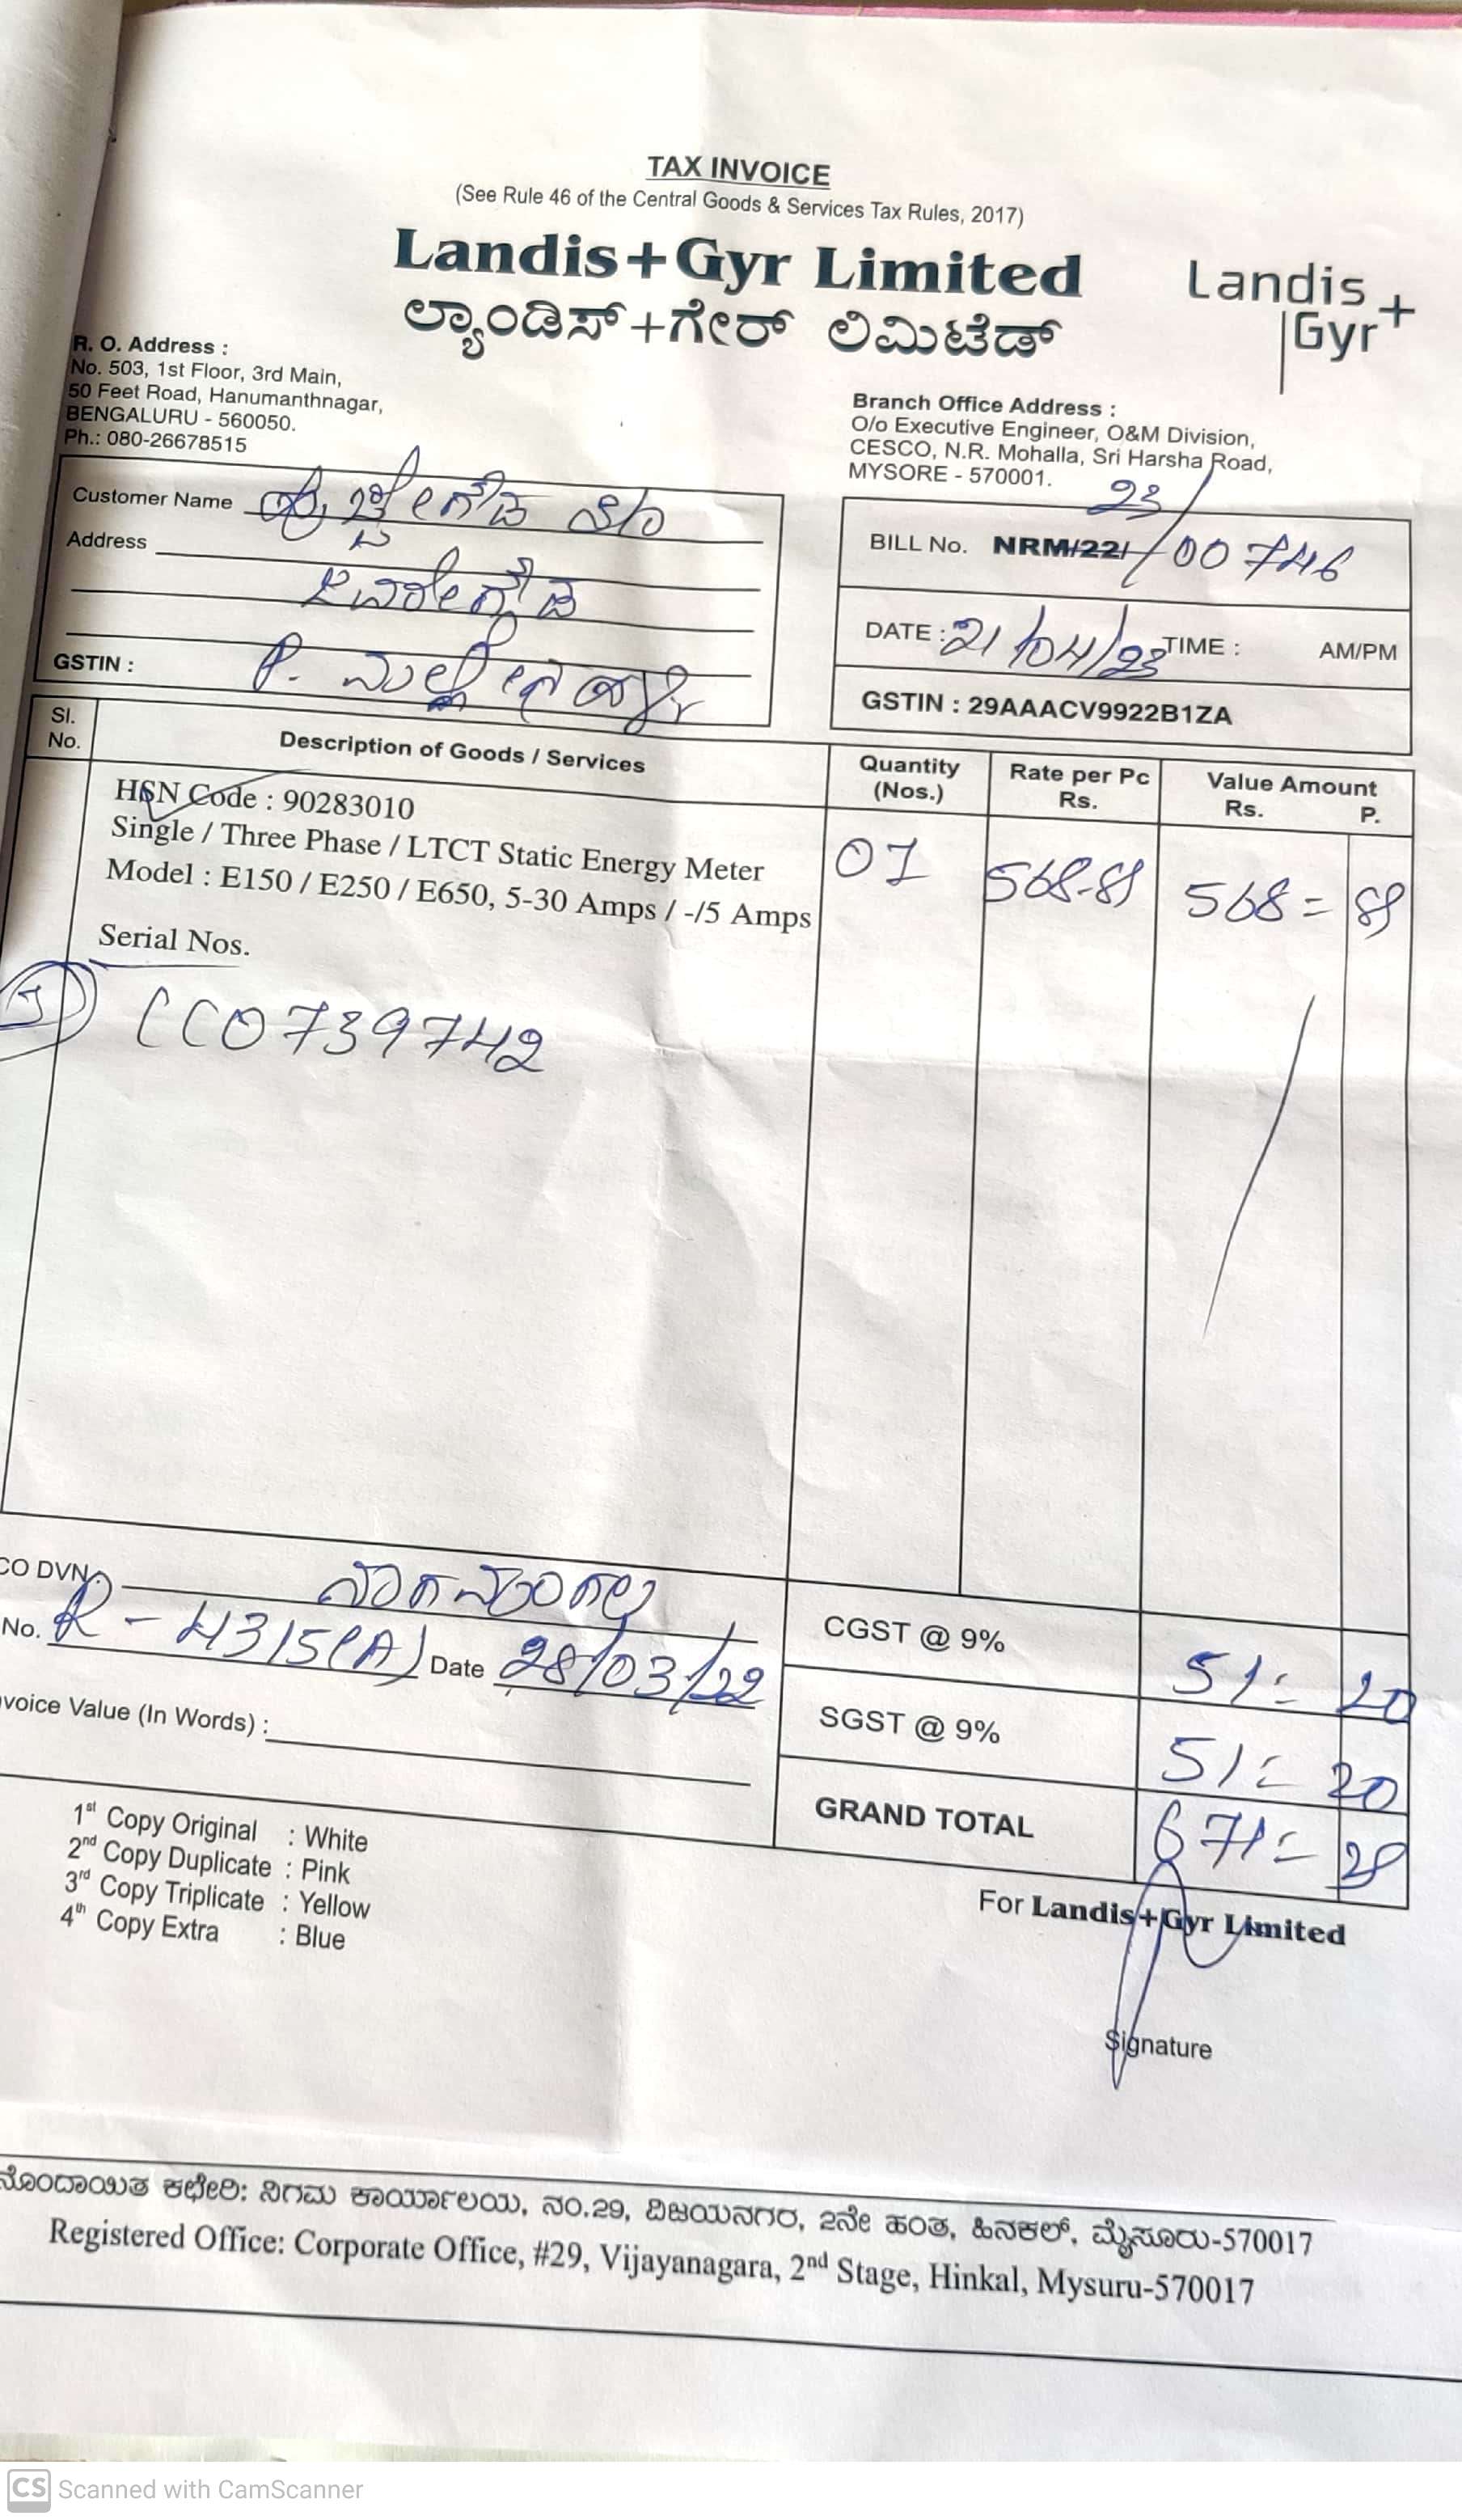 TAX INVOICE
(See Rule 46 of the Central Goods & Services Tax Rules, 2017)
Landis+Gyr Limited
ಲ್ಯಾಂಡಿಸ್+ಗೇರ್ ಲಿಮಿಟೆಡ್
Landis
Gyr+
R. O. Address :
No. 503, 1st Floor, 3rd Main,
50 Feet Road, Hanumanthnagar,
BENGALURU - 560050.
Ph.: 080-26678515
Branch Office Address :
O/o Executive Engineer, O&M Division,
CESCO, N.R. Mohalla, Sri Harsha Road,
MYSORE - 570001.
Customer Name
Address
GSTIN :
23/
BILL No. NRM/22/ 00746
DATE : 21/04/23 TIME : AM/PM
GSTIN : 29AAACV9922B1ZA
Sl. No. Description of Goods / Services Quantity (Nos.) Rate per Pc Rs. Value Amount Rs. P.
HSN Code : 90283010
Single / Three Phase / LTCT Static Energy Meter 01 568-89 568=89
Model : E150 / E250 / E650, 5-30 Amps / -/5 Amps
Serial Nos.
CC0739742
CO DVN. ನಾಗಮಂಗಲ
No. R - 4315(A) Date 28/03/22
voice Value (In Words) :
CGST @ 9% 51= 20
SGST @ 9% 51= 20
GRAND TOTAL 671= 28
1st Copy Original : White
2nd Copy Duplicate : Pink
3rd Copy Triplicate : Yellow
4th Copy Extra : Blue
For Landis+Gyr Limited
Signature
ನೊಂದಾಯಿತ ಕಛೇರಿ: ನಿಗಮ ಕಾರ್ಯಾಲಯ, ನಂ.29, ವಿಜಯನಗರ, 2ನೇ ಹಂತ, ಹಿನಕಲ್, ಮೈಸೂರು-570017
Registered Office: Corporate Office, #29, Vijayanagara, 2nd Stage, Hinkal, Mysuru-570017
CS Scanned with CamScanner